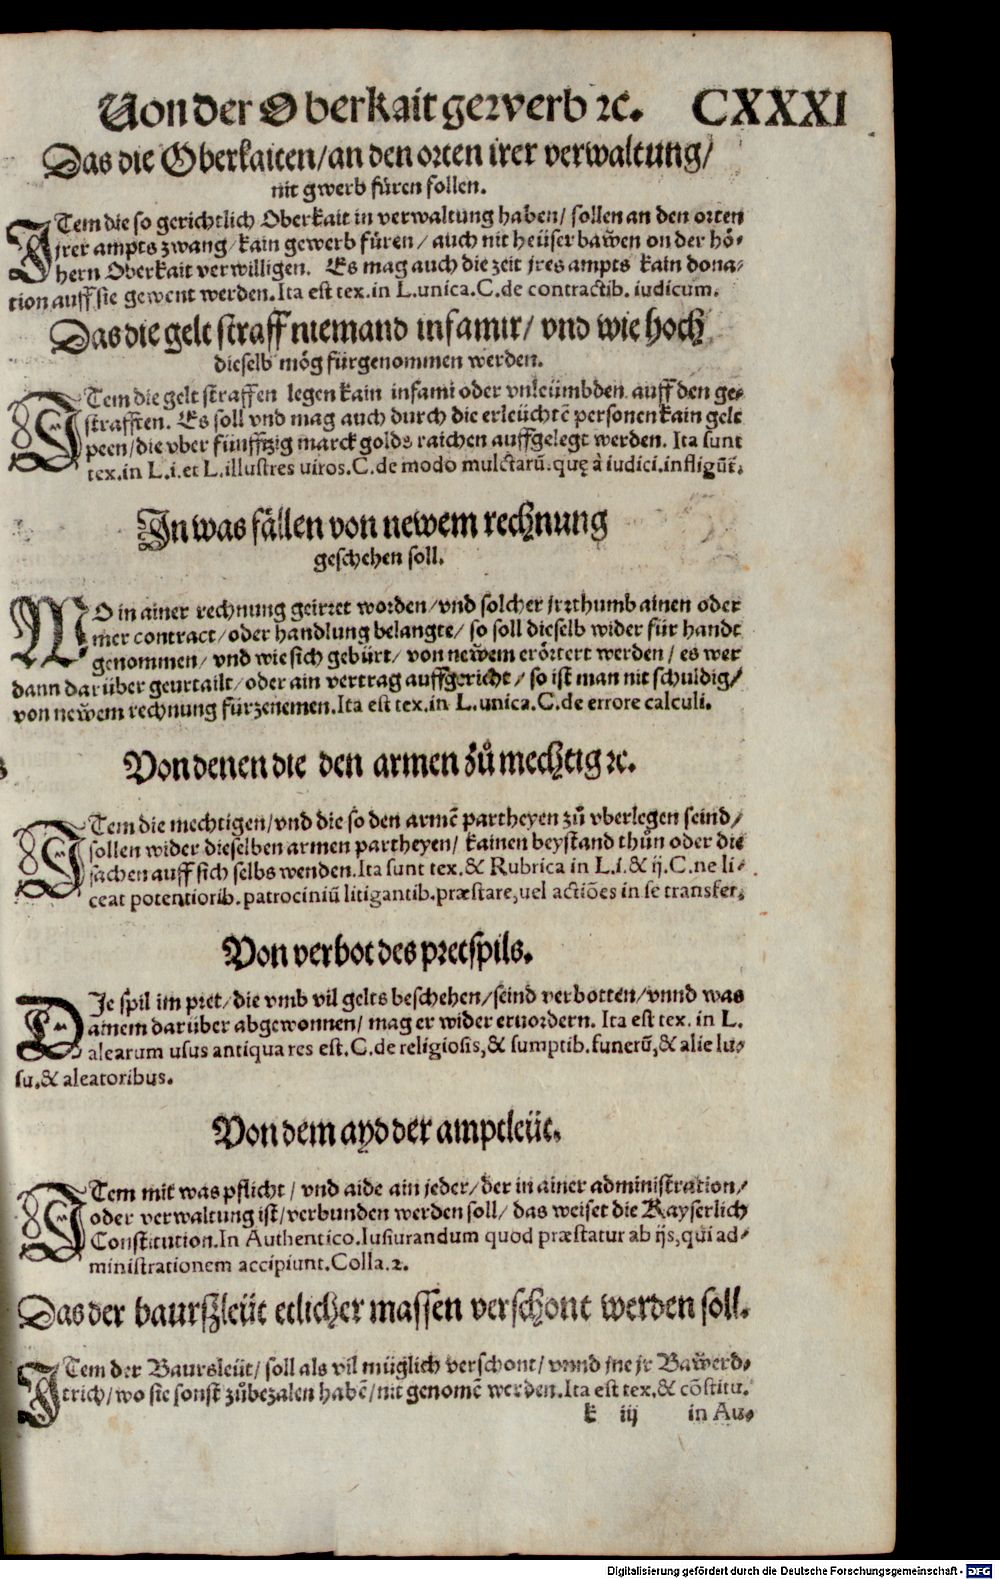 Von der Oberkait gewerb ꝛc. CXXXI
Das die Oberkaiten/an den orten irer verwaltung/
nit gwerb füren sollen.
ITem die so gerichtlich Oberkait in verwaltung haben/ sollen an den orten
jrer ampts zwang/kain gewerb füren/ auch nit heüser bawen on der hö-
hern Oberkait verwilligen. Es mag auch die zeit jres ampts kain dona-
tion auff sie gewent werden. Ita est tex. in L. unica. C. de contractib. iudicum.
Das die gelt straff niemand infamir/ vnd wie hoch
dieselb mög fürgenommen werden.
ITem die gelt straffen legen kain infami oder vnleümbden auff den ge-
strafften. Es soll vnd mag auch durch die erleüchtē personen kain gelt
peen/die vber fünfftzig marck golds raichen auffgelegt werden. Ita sunt
tex. in L. i. et L. illustres uiros. C. de modo mulctarū. quę à iudici. infligūt̄.
In was fällen von newem rechnung
geschehen soll.
WO in ainer rechnung geirret worden/vnd solcher jrrthumb ainen oder
mer contract/oder handlung belangte/ so soll dieselb wider für handt
genommen/ vnd wie sich gebürt/ von newem erörtert werden/ es wer
dann darüber geurtailt/oder ain vertrag auffgericht/ so ist man nit schuldig/
von newem rechnung fürzenemen. Ita est tex. in L. unica. C. de errore calculi.
Von denen die den armen zů mechtig ꝛc.
ITem die mechtigen/vnd die so den armē partheyen zů vberlegen seind/
sollen wider dieselben armen partheyen/ kainen beystand thůn oder die
sachen auff sich selbs wenden. Ita sunt tex. & Rubrica in L. i. & ij. C. ne li-
ceat potentiorib. patrociniū litigantib. præstare, uel actiōes in se transfer.
Von verbot des pretspils.
DIe spil im pret/die vmb vil gelts beschehen/seind verbotten/vnnd was
ainem darüber abgewonnen/ mag er wider eruordern. Ita est tex. in L.
alearum usus antiqua res est. C. de religiosis, & sumptib. funerū, & alie lu-
su. & aleatoribus.
Von dem ayd der amptleüt.
ITem mit was pflicht/ vnd aide ain jeder/der in ainer administration/
oder verwaltung ist/verbunden werden soll/ das weiset die Kayserlich
Constitution. In Authentico. Iusiurandum quod præstatur ab ijs, qui ad-
ministrationem accipiunt. Colla. 2.
Das der baurszleüt etlicher massen verschont werden soll.
ITem der Baursleüt/ soll als vil müglich verschont/ vnnd jne jr Bawerd-
trich/wo sie sonst zůbezalen habē/nit genomē werden. Ita est tex. & cōstitu.
k iij in Au-
Digitalisierung gefördert durch die Deutsche Forschungsgemeinschaft - DFG